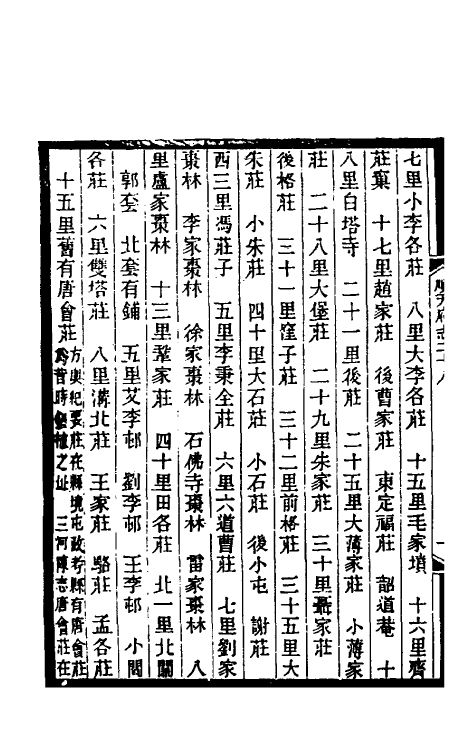 七里小李各莊　八里大李各莊　十五里毛家墳　十六里齊
莊窠　十七里趙家莊　後曹家莊　東定福莊　韶道菴　十
八里白塔寺　二十一里後莊　二十五里大薄家莊　小薄家
莊　二十八里大堡莊　二十九里朱家莊　三十里聶家莊
後格莊　三十一里窪子莊　三十二里前格莊　三十五里大
朱莊　小朱莊　四十里大石莊　小石莊　後小屯　謝莊
西三里馮莊子　五里李秉全莊　六里六道曹莊　七里劉家
棗林　李家棗林　徐家棗林　石佛寺棗林　雷家棗林　八
里盧家棗林　十三里鞏家莊　四十里田各莊　北一里北關
郭套　北套有鋪　五里艾李邨　劉李邨　王李邨　小閻
各莊　六里雙塔莊　八里溝北莊　王家莊　駱莊　孟各莊
十五里舊有唐會莊
方輿紀要莊在縣境屯政考縣有唐會莊
爲昔時之址　三河陳志唐會莊在
順天府志二十八